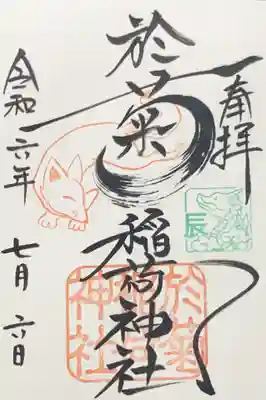 奉拝
辰
於菊
稲荷神社
於菊稲荷神社
令和六年
七月六日